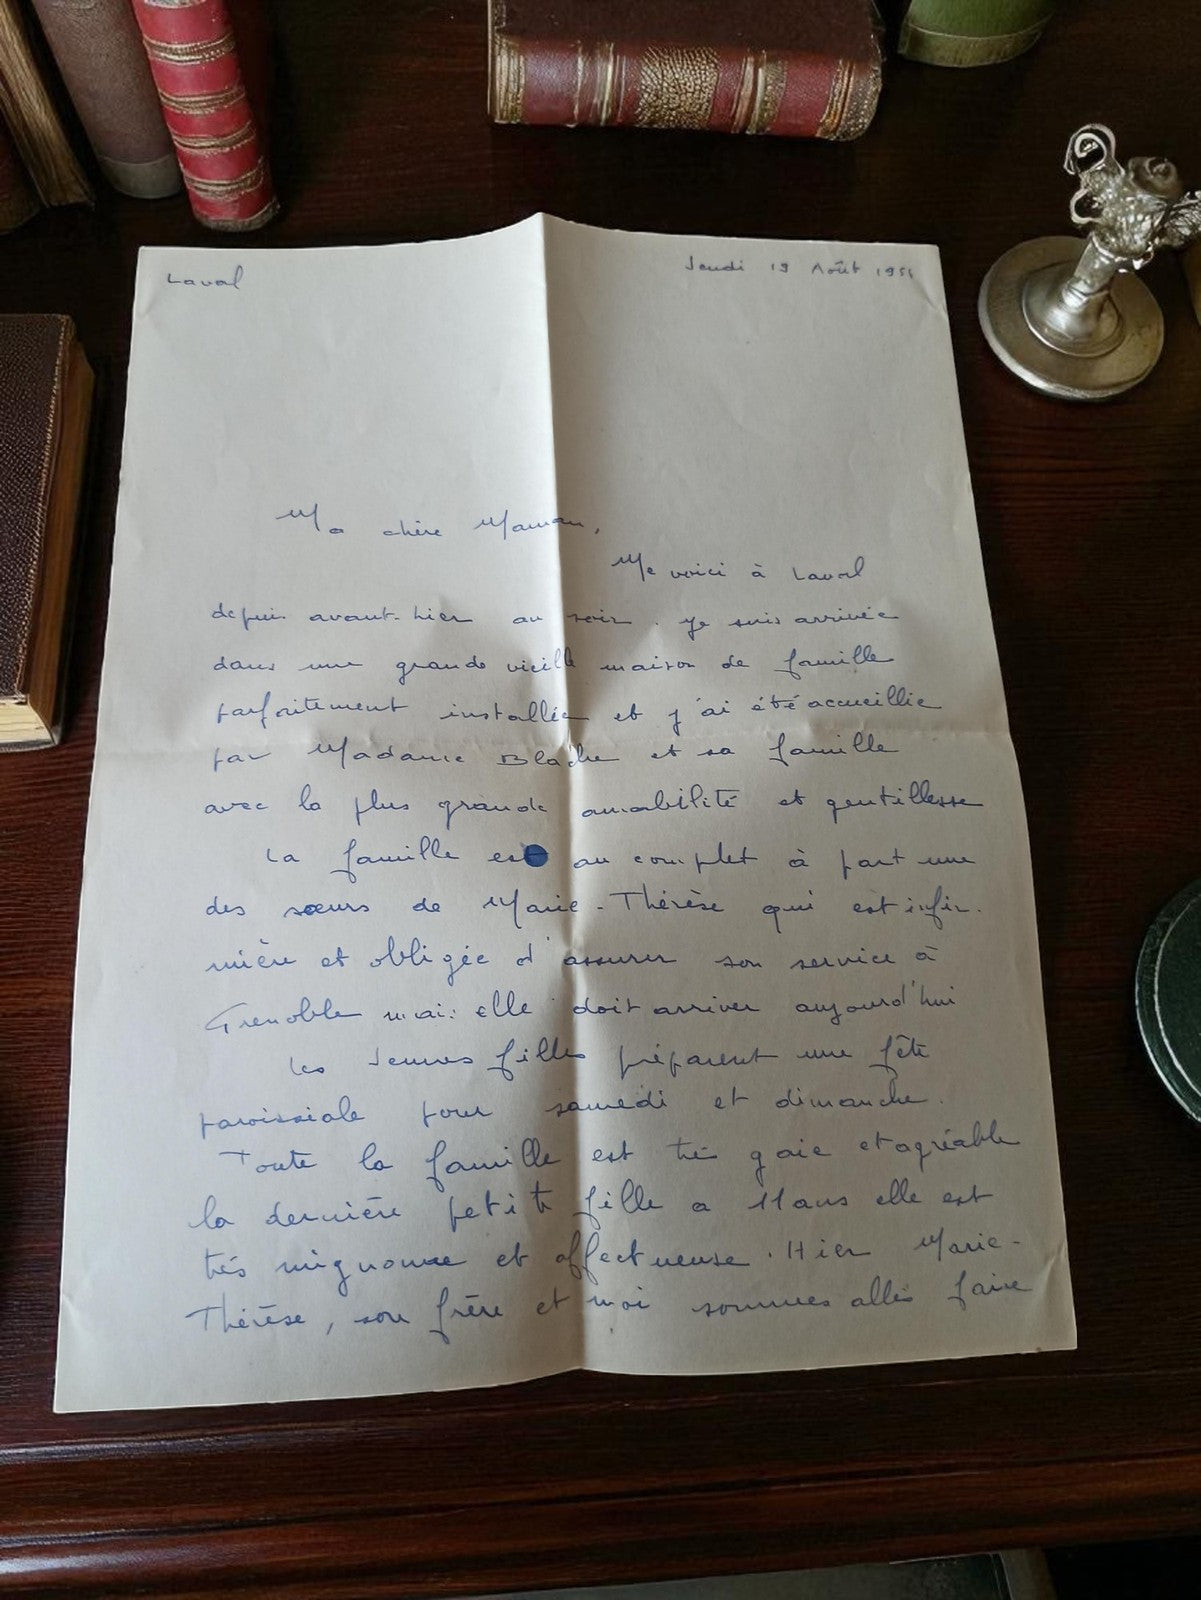 Laval
Jeudi 19 Août 195
Ma chère Maman,
Me voici à Laval
depuis avant-hier au soir. Je suis arrivée
dans une grande vieille maison de famille
parfaitement installée et j'ai été accueillie
par Madame Blache et sa famille
avec la plus grande amabilité et gentillesse
La famille est au complet à part une
des sœurs de Marie-Thérèse qui est infir-
mière et obligée d'assurer son service à
Grenoble mais elle doit arriver aujourd'hui
Les Jeunes filles préparent une fête
paroissiale pour samedi et dimanche.
Toute la famille est très gaie et agréable
la dernière petite fille a 11 ans elle est
très mignonne et affectueuse. Hier Marie-
Thérèse, son frère et moi sommes allés faire